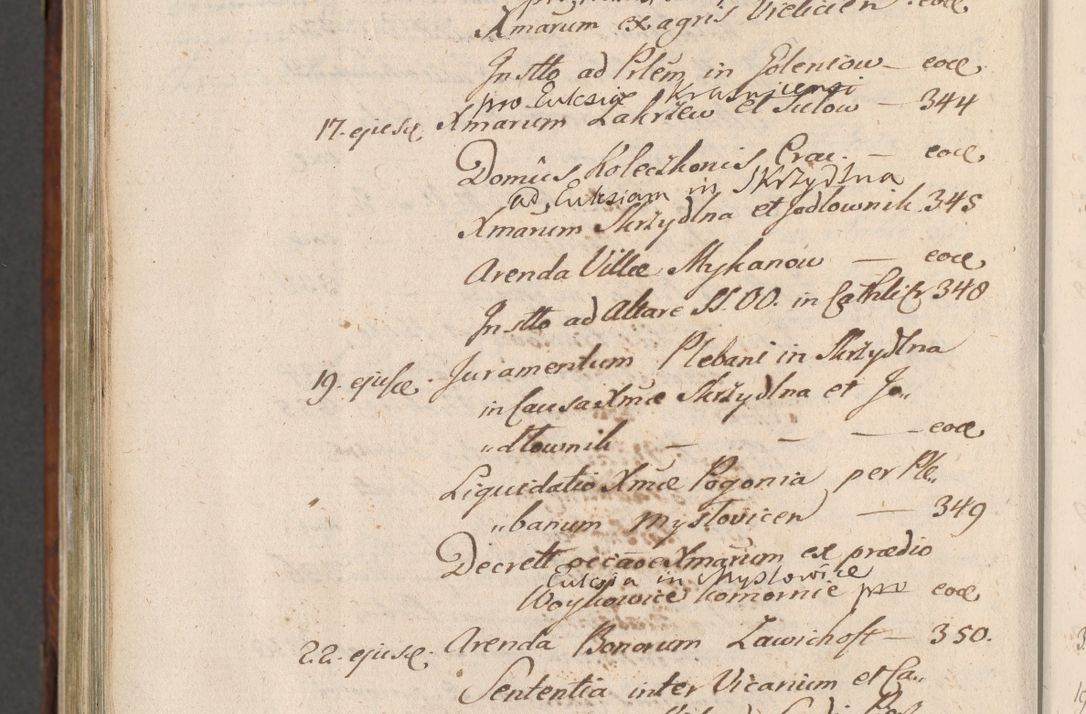 Xmarum ex agris Vielicien eoce
Instto ad Prlem in Goleniow – eoce
pro Eulesiæ Krasnicensi
17. ejusd. Xmarum Zakrzew et Sulow – 344
Domus Koleczkonis Crac. – eoce
ad Eulesiam in Skrzydlna
Xmarum Skrzydlna et Jodlownik. 345
Arenda Villæ Mykanow – eoce
Instto ad Altare SS. OO. in Cathli 348
19. ejusd. Juramentum Plebani in Skrzydlna
in Causa Xmæ Skrzydlna et Jo„
„dlownik – – – eoce
Liquidatio Xmæ Pogonia per Ple„
„banum Myslovicen – 349
Decrett Xmarum ex prædio
Eulesia in Myslowice
Woykowice komornie pro eoce
22. ejusd. Arenda Bonorum Zawichost – 350.
Sententia inter Vicarium et Ca„